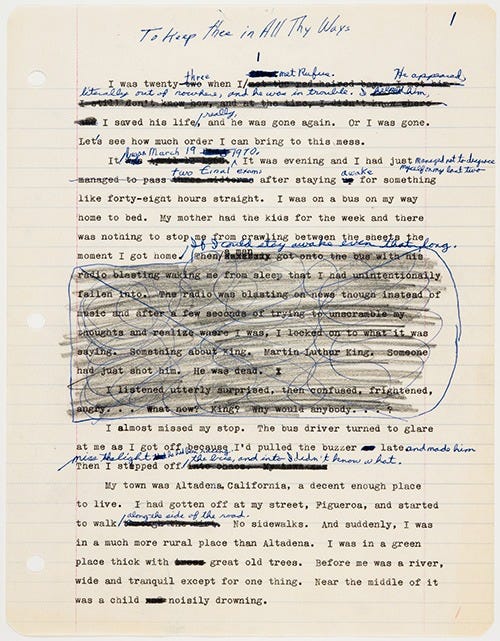 To Keep thee in All Thy Ways
1
1
three met Rufus. He appeared
I was twenty-two when I met the red-haired boy.
literally out of nowhere, and he was in trouble. I helped him,
I still don't know how, and at the time, I didn't know where
really
and I saved his life, and he was gone again. Or I was gone.
Let's see how much order I can bring to this mess.
was March 19 1976
It It was evening and I had just managed not to disgrace
two final exams awake myself on my last two
managed to pass three midterms after staying up for something
like forty-eight hours straight. I was on a bus on my way
home to bed. My mother had the kids for the week and there
was nothing to stop me from crawling between the sheets the
If I could stay awake even that long.
moment I got home. Then a man got onto the bus with his
radio blasting waking me from sleep that I had unintentionally
fallen into. The radio was blasting on news though instead of
music and after a few seconds of trying to unscramble my
thoughts and realize where I was, I locked on to what it was
saying. Something about King. Martin Luthur King. Someone
had just shot him. He was dead. I
I listened utterly surprised, then confused, frightened,
angry. . . What now? King? Why would anybody. . . . ?
I almost missed my stop. The bus driver turned to glare
at me as I got off because I'd pulled the buzzer late and made him
miss the light the bus, and into I didn't know what.
Then I stepped off
My town was Altadena California, a decent enough place
to live. I had gotten off at my street, Figueroa, and started
along the side of the road.
to walk through the dirt. No sidewalks. And suddenly, I was
in a much more rural place than Altadena. I was in a green
place thick with great old trees. Before me was a river,
wide and tranquil except for one thing. Near the middle of it
was a child noisily drowning.